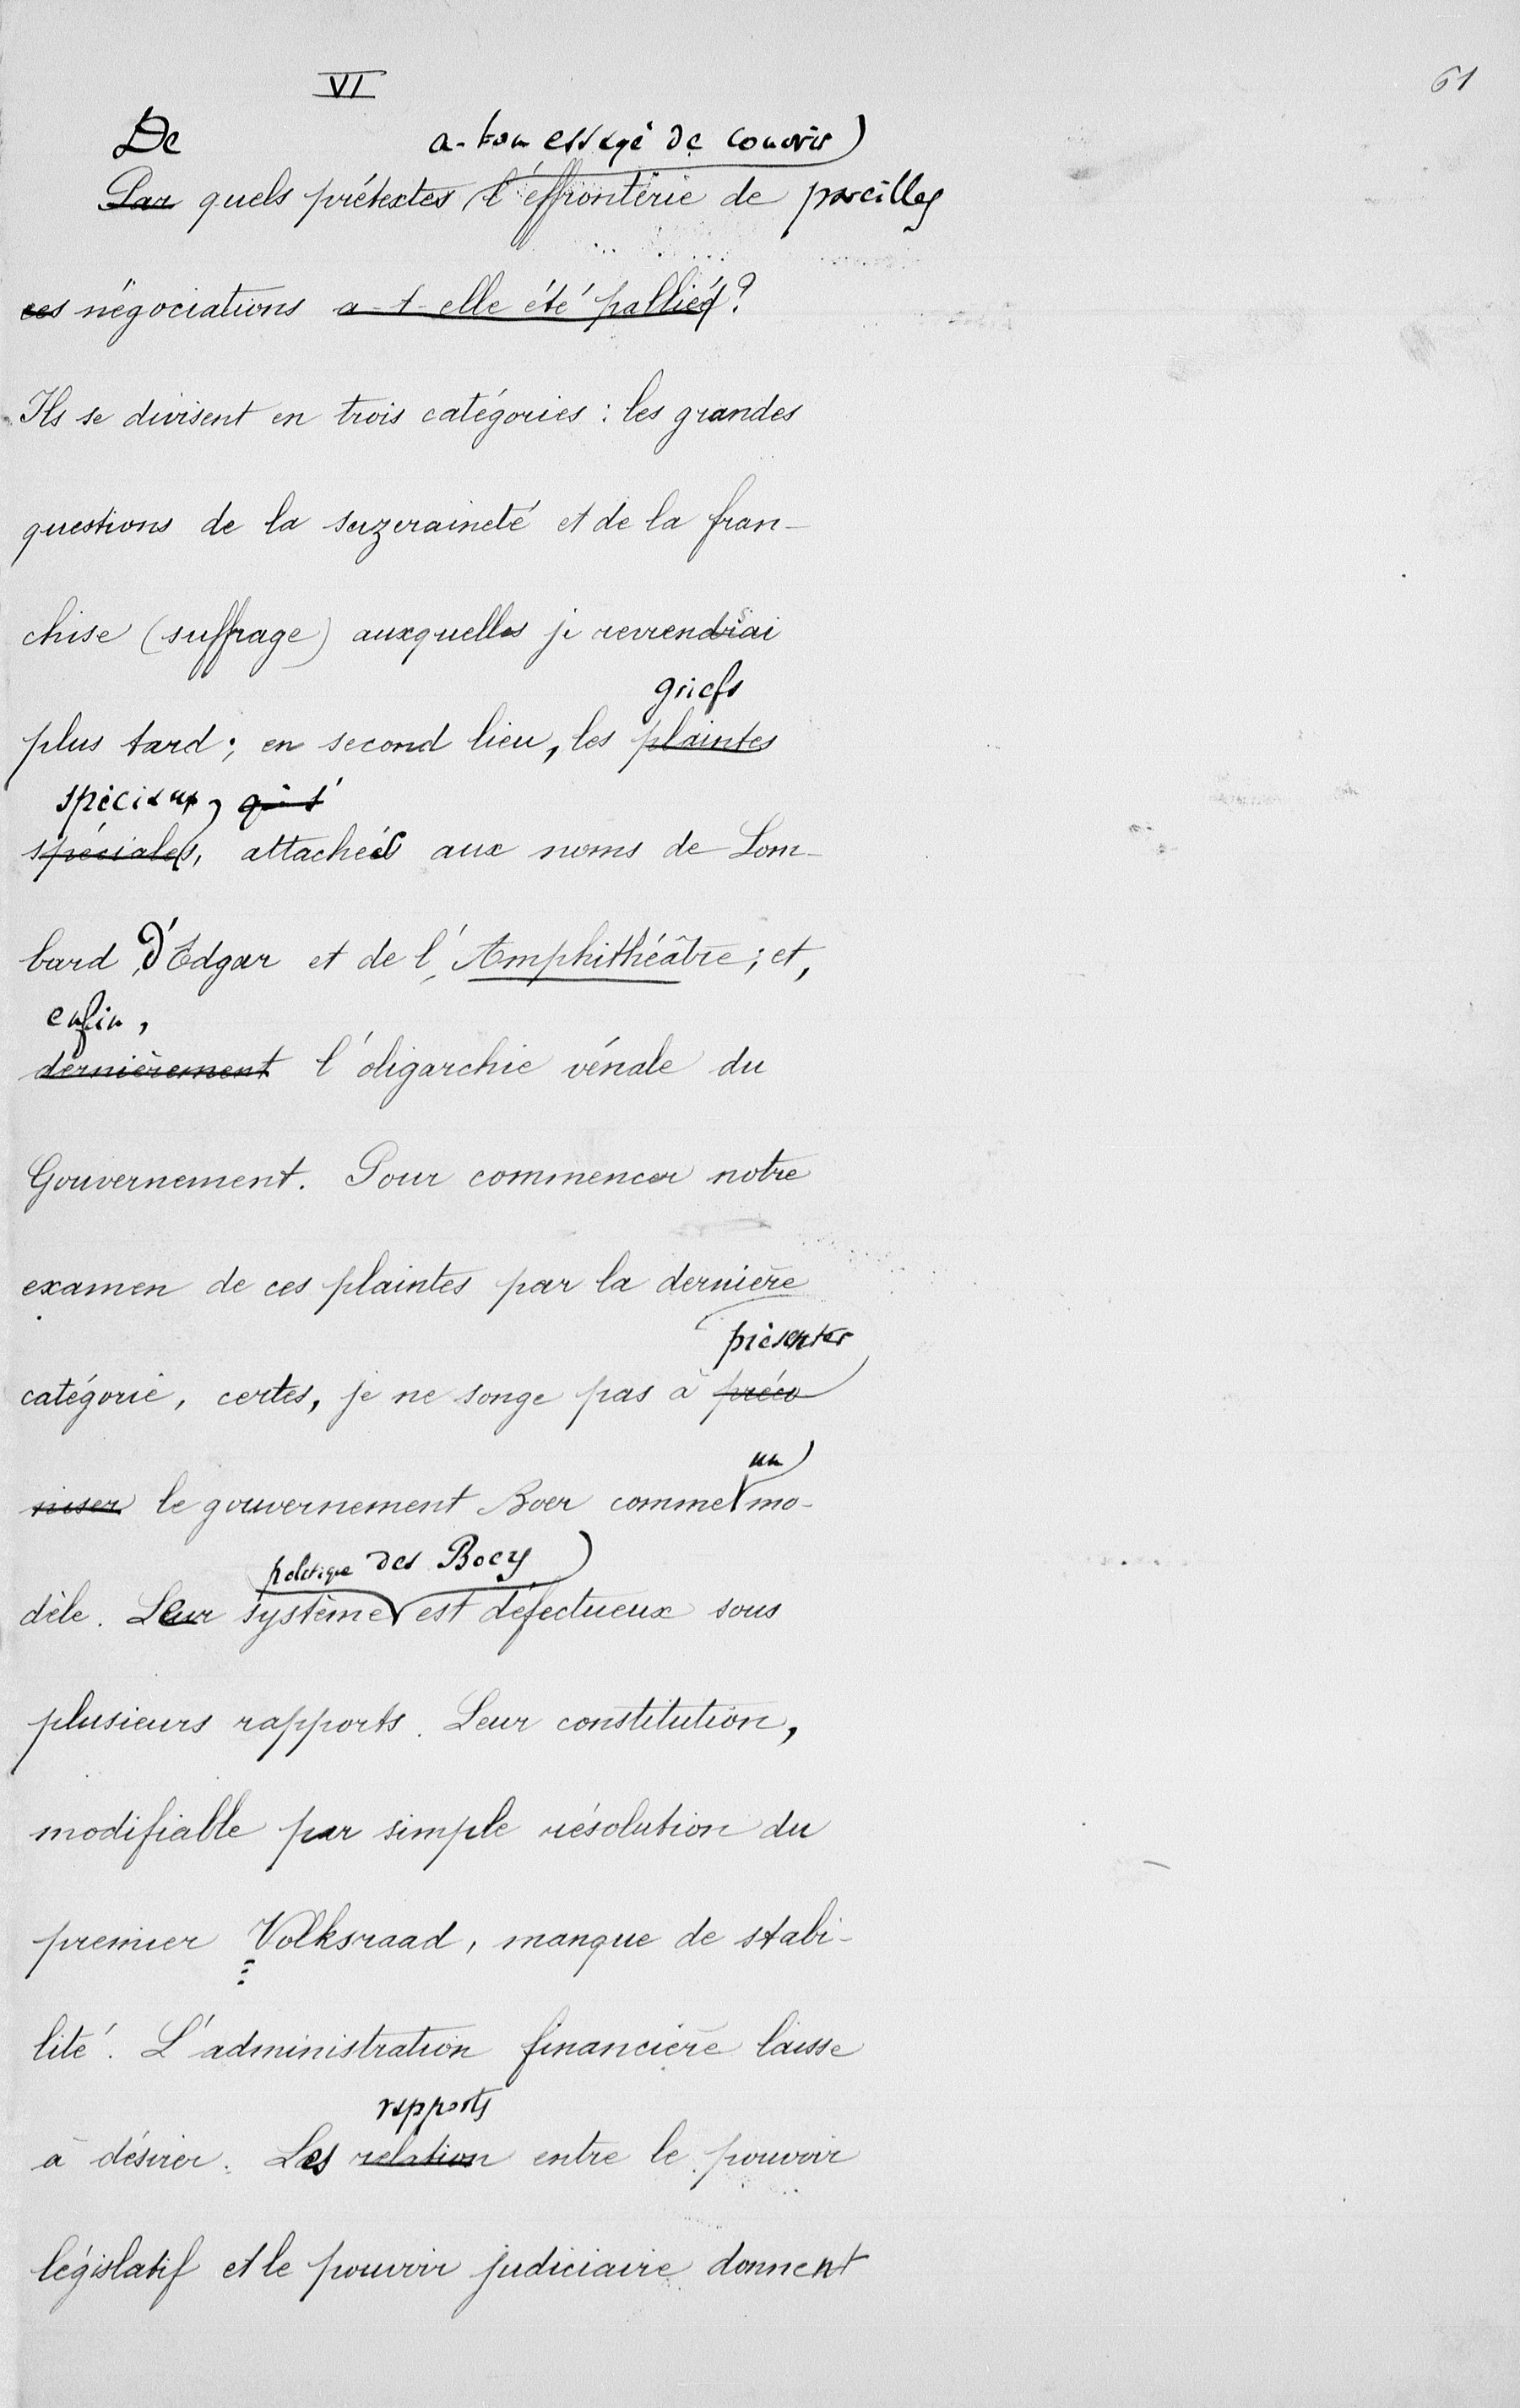 VI
61
De a-t-on essayé de couvrir
Par quels prétextes l'effronterie de pareilles
ces négociations a-t-elle été palliée?
Ils se divisent en trois catégories : les grandes
questions de la suzeraineté et de la fran-
chise (suffrage) auxquelles je reviendrai
griefs
plus tard; en second lieu, les plaintes
spéciaux,
spéciales, attachés aux noms de Lom-
bard, d'Edgar et de l'Amphithéâtre; et,
enfin,
dernièrement l'oligarchie vénale du
Gouvernement. Pour commencer notre
examen de ces plaintes par la dernière
présenter
catégorie, certes, je ne songe pas à préco
niser le gouvernement Boer comme un mo-
politique des Boers
dèle. Leur système est défectueux sous
plusieurs rapports. Leur constitution,
modifiable par simple résolution du
premier Volksraad, manque de stabi-
lité. L'administration financière laisse
rapports
à désirer. Les relation entre le pouvoir
législatif et le pouvoir judiciaire donnent